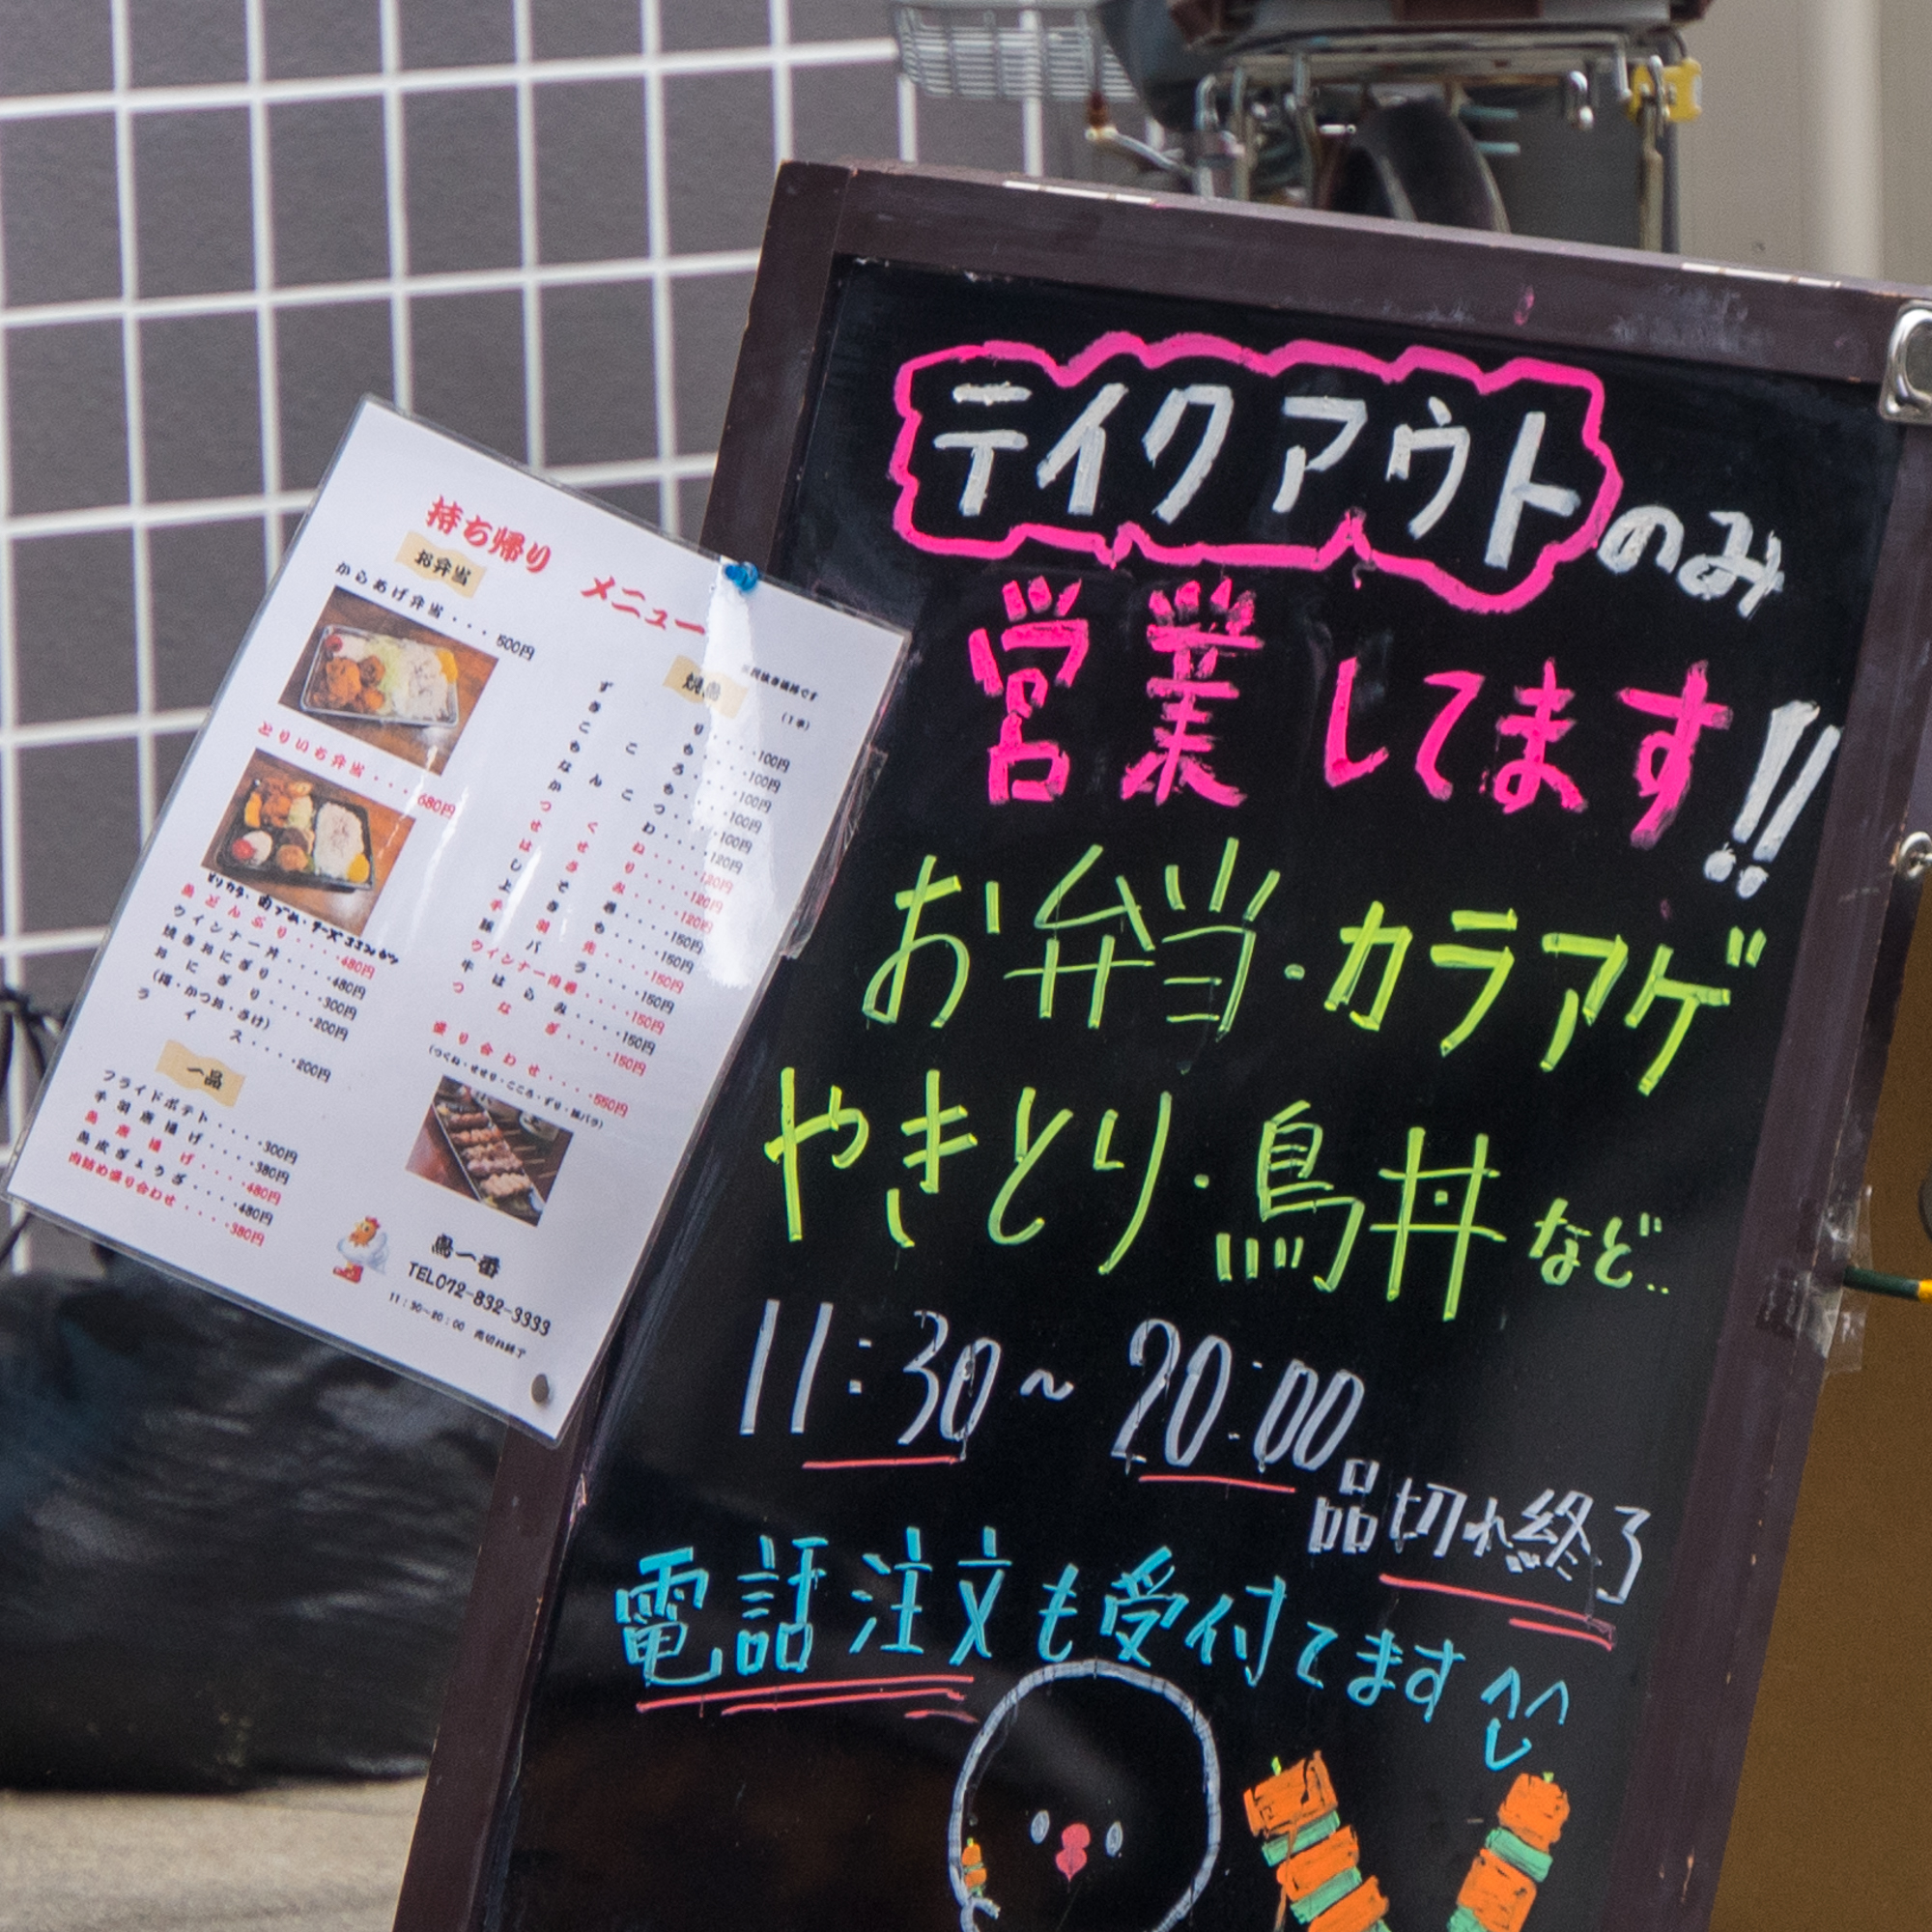 テイクアウトのみ
営業してます!!
お弁当・カラアゲ
やきとり・鳥丼など..
11:30~20:00
品切れ終了
電話注文も受付てます
持ち帰り メニュー
お弁当
からあげ弁当・・・500円
とりいち弁当・・・680円
鳥どんぶり・・・・480円
ウインナー丼・・・・480円
焼きおにぎり・・・・300円
おにぎり・・・・200円
(梅・かつお・さけ)
ライス・・・・200円
一品
フライドポテト・・・・300円
手羽唐揚げ・・・・380円
鳥唐揚げ・・・・480円
鳥皮ぎょうざ・・・・480円
肉詰め盛り合わせ・・・・380円
(1本)
ずり・・・・100円
きも・・・・100円
こころ・・・・100円
もも・・・・100円
なんこつ・・・・100円
かわ・・・・120円
つくね・・・・120円
せせり・・・・120円
ウインナー肉巻・・・・150円
牛はらみ・・・・150円
つなぎ・・・・150円
盛り合わせ・・・・550円
(つくね・せせり・こころ・ずり・豚バラ)
鳥一番
TEL072-832-3333
11:30~20:00 売切れ終了